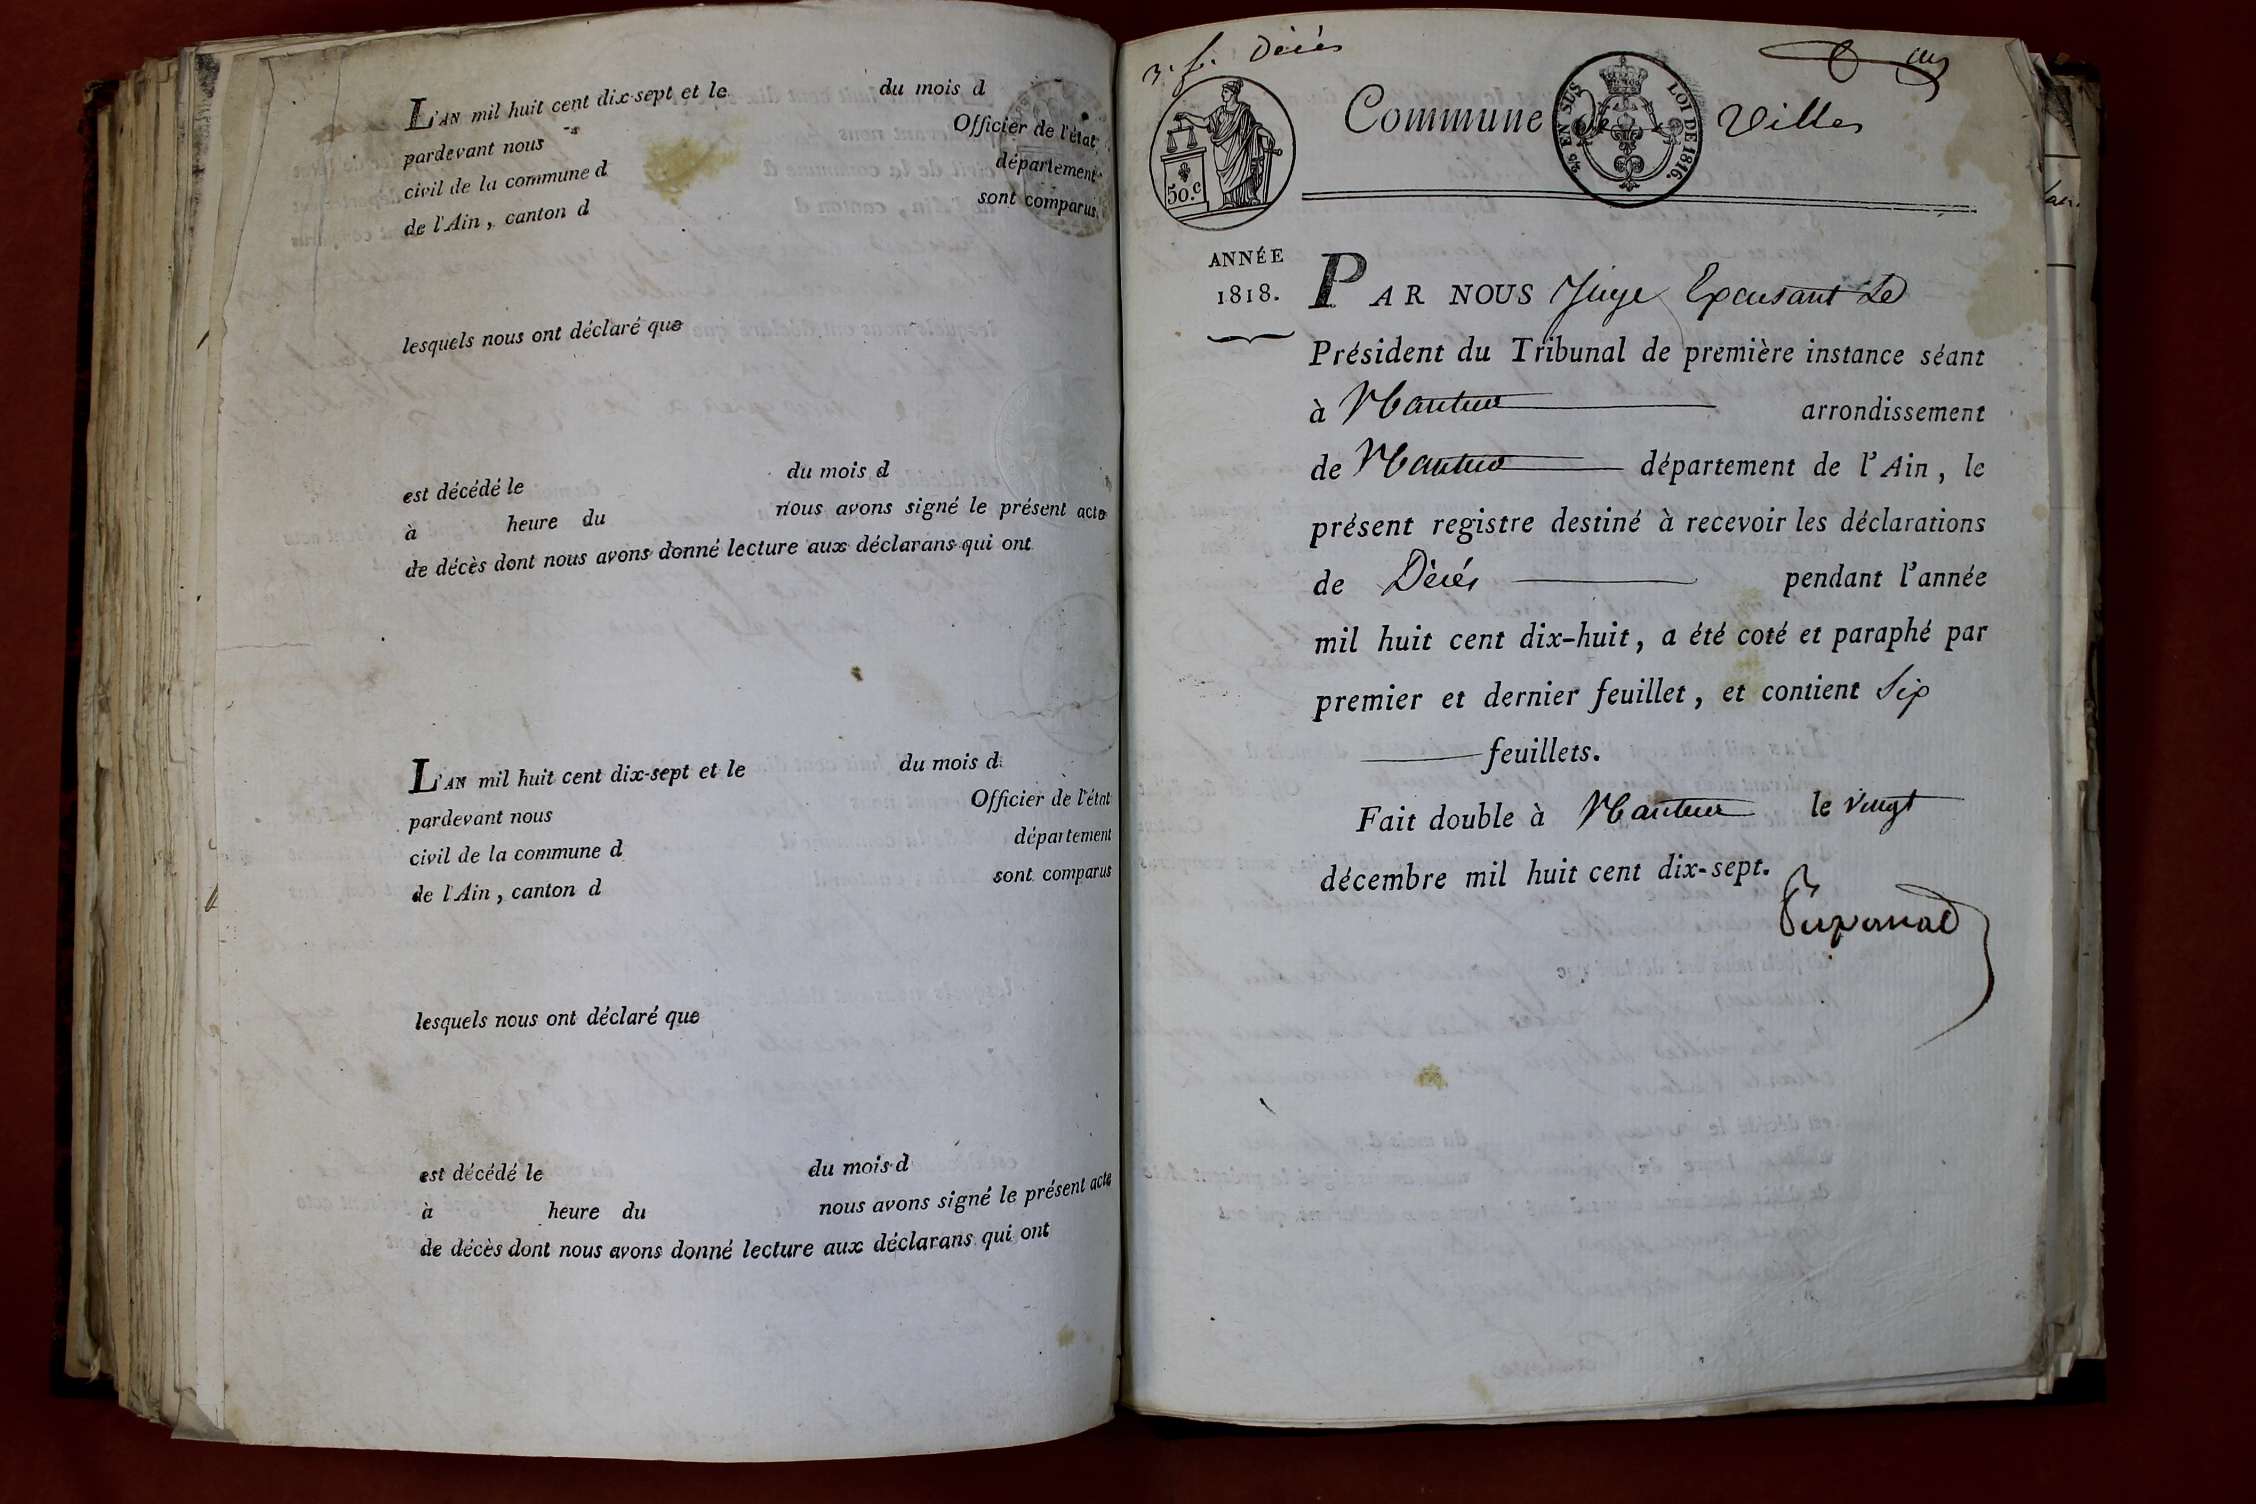 L'AN mil huit cent dix-sept et le du mois d
pardevant nous Officier de l'état
civil de la commune d département
de l'Ain, canton d sont comparus
lesquels nous ont déclaré que
est décédé le du mois d
à heure du nous avons signé le présent acte
de décès dont nous avons donné lecture aux déclarans qui ont
L'AN mil huit cent dix-sept et le du mois d
pardevant nous Officier de l'état
civil de la commune d département
de l'Ain, canton d sont comparus
lesquels nous ont déclaré que
est décédé le du mois d
à heure du nous avons signé le présent acte
de décès dont nous avons donné lecture aux déclarans qui ont
3. f. Décès
50.c
Commune de Villes
EN SUS LOI DE 1816.
ANNÉE
1818.
PAR NOUS Juge Excusant Le
Président du Tribunal de première instance séant
à Nantua arrondissement
de Nantua département de l'Ain, le
présent registre destiné à recevoir les déclarations
de Décés pendant l'année
mil huit cent dix-huit, a été coté et paraphé par
premier et dernier feuillet, et contient Six
feuillets.
Fait double à Nantua le vingt
décembre mil huit cent dix-sept.